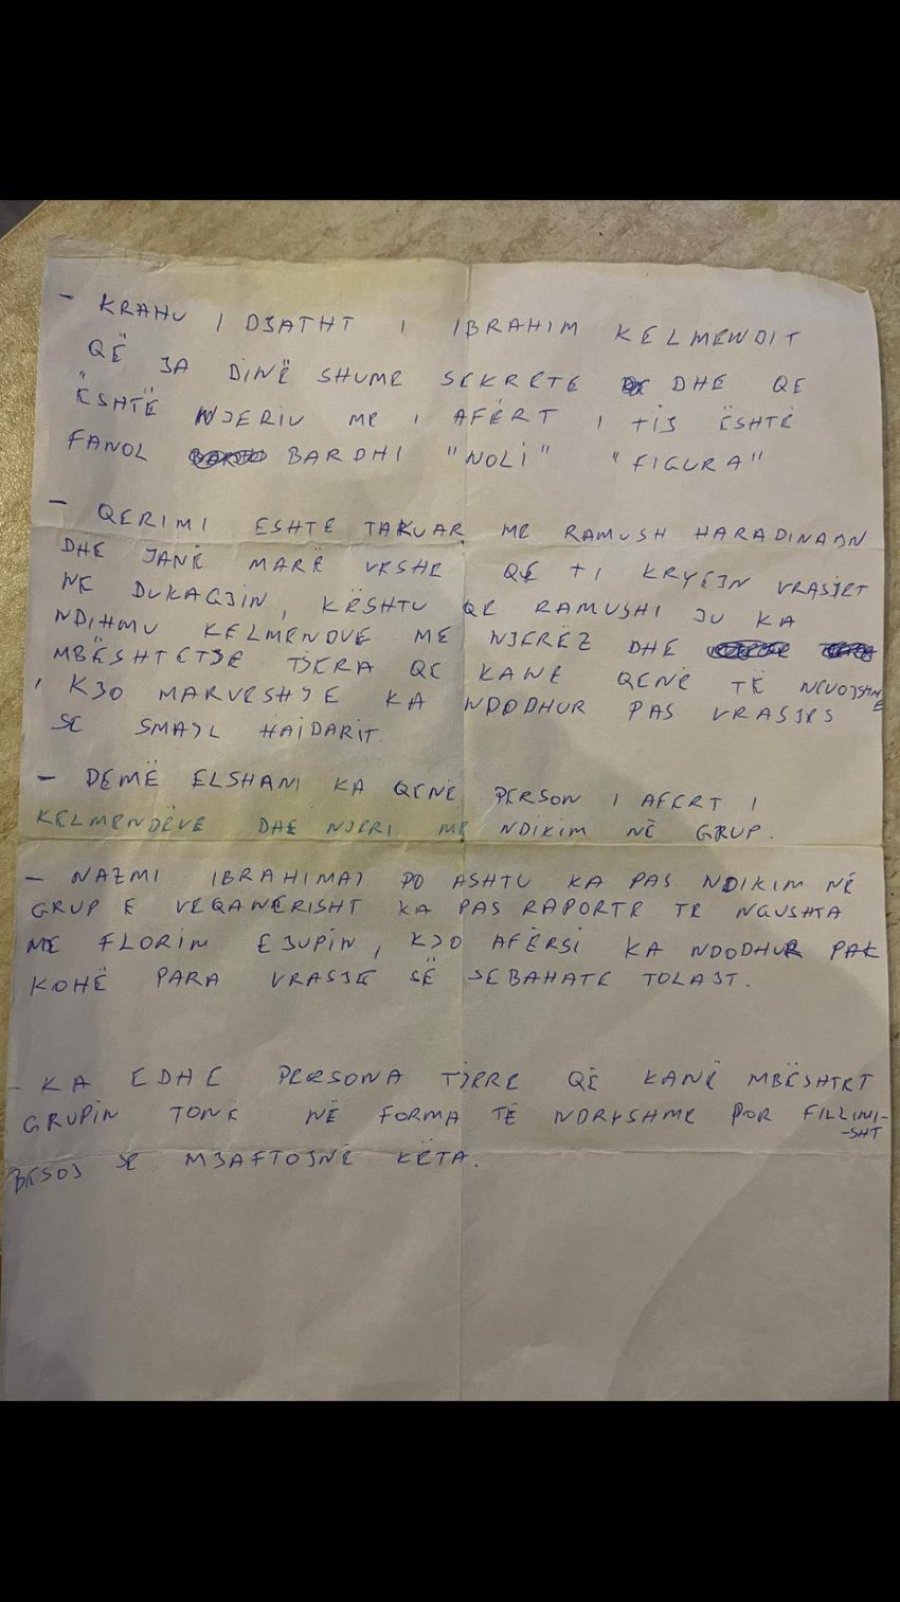 - KRAHU I DJATHT I IBRAHIM KELMENDIT
QË JA DINË SHUME SEKRETE DHE QE
ËSHTË NJERIU ME I AFËRT I TIJ ËSHTË
FANOL BARDHI "NOLI" "FIGURA"
- QERIMI ESHTE TAKUAR ME RAMUSH HARADINAJN
DHE JANË MARË VESHE QË TI KRYEJN VRASJET
NE DUKAGJIN, KËSHTU QE RAMUSHI JU KA
NDIHMU KELMENDVE ME NJERËZ DHE
MBËSHTETJE TJERA QE KANE QENË TË NEVOJSHME
, KJO MARVESHJE KA NDODHUR PAS VRASJES
SE SMAJL HAIDARIT.
- DEMË ELSHANI KA QENË PERSON I AFERT I
KELMENDËVE DHE NJERI ME NDIKIM NË GRUP.
- NAZMI IBRAHIMAJ PO ASHTU KA PAS NDIKIM NË
GRUP E VEQANERISHT KA PAS RAPORTE TE NGUSHTA
ME FLORIM EJUPIN, KJO AFËRSI KA NDODHUR PAK
KOHË PARA VRASJE SË SEBAHATE TOLAJT.
- KA EDHE PERSONA TJERE QË KANË MBËSHTET
GRUPIN TONË NË FORMA TË NDRYSHME POR FILLIMI-
-SHT
BESOJ SE MJAFTOJNË KËTA.